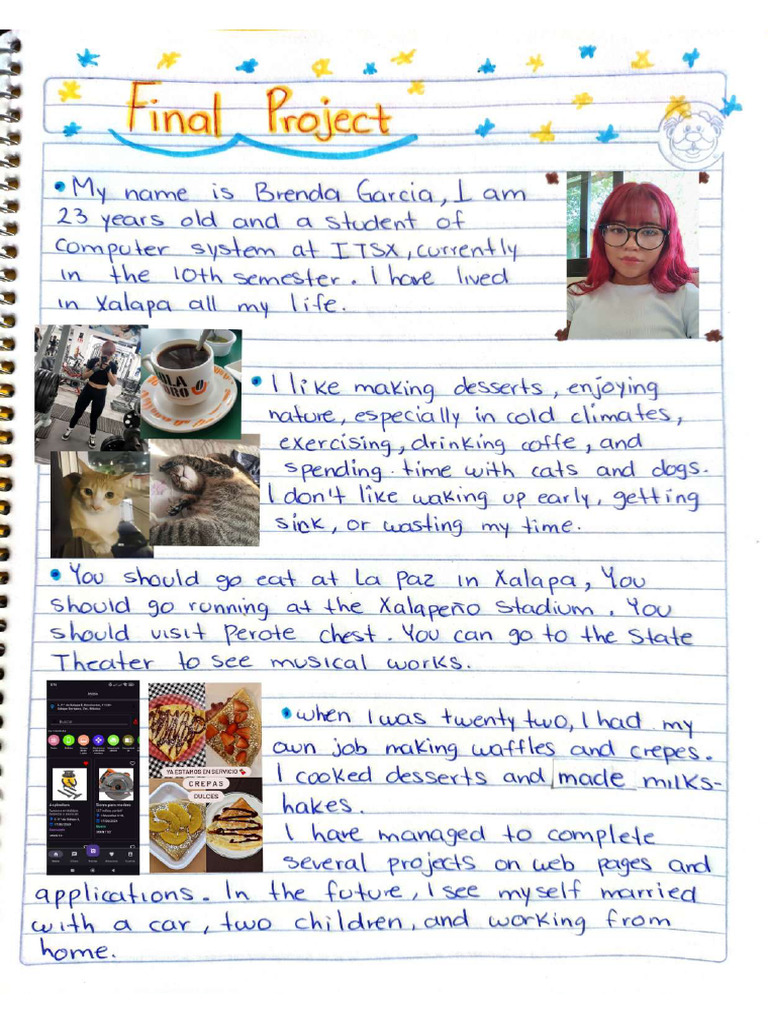 Final Project
• My name is Brenda Garcia, I am
23 years old and a student of
computer system at ITSX, currently
in the 10th semester. I have lived
in Xalapa all my life.
• I like making desserts, enjoying
nature, especially in cold climates,
exercising, drinking coffe, and
spending time with cats and dogs.
I don't like waking up early, getting
sick, or wasting my time.
• You should go eat at La Paz in Xalapa, You
should go running at the Xalapeño Stadium. You
should visit Perote chest. You can go to the State
Theater to see musical works.
• when I was twenty two, I had my
own job making waffles and crepes.
I cooked desserts and made milks-
hakes.
I have managed to complete
several projects on web pages and
applications. In the future, I see myself married
with a car, two children, and working from
home.
Buscar
YA ESTAMOS EN SERVICIO
CREPAS
DULCES